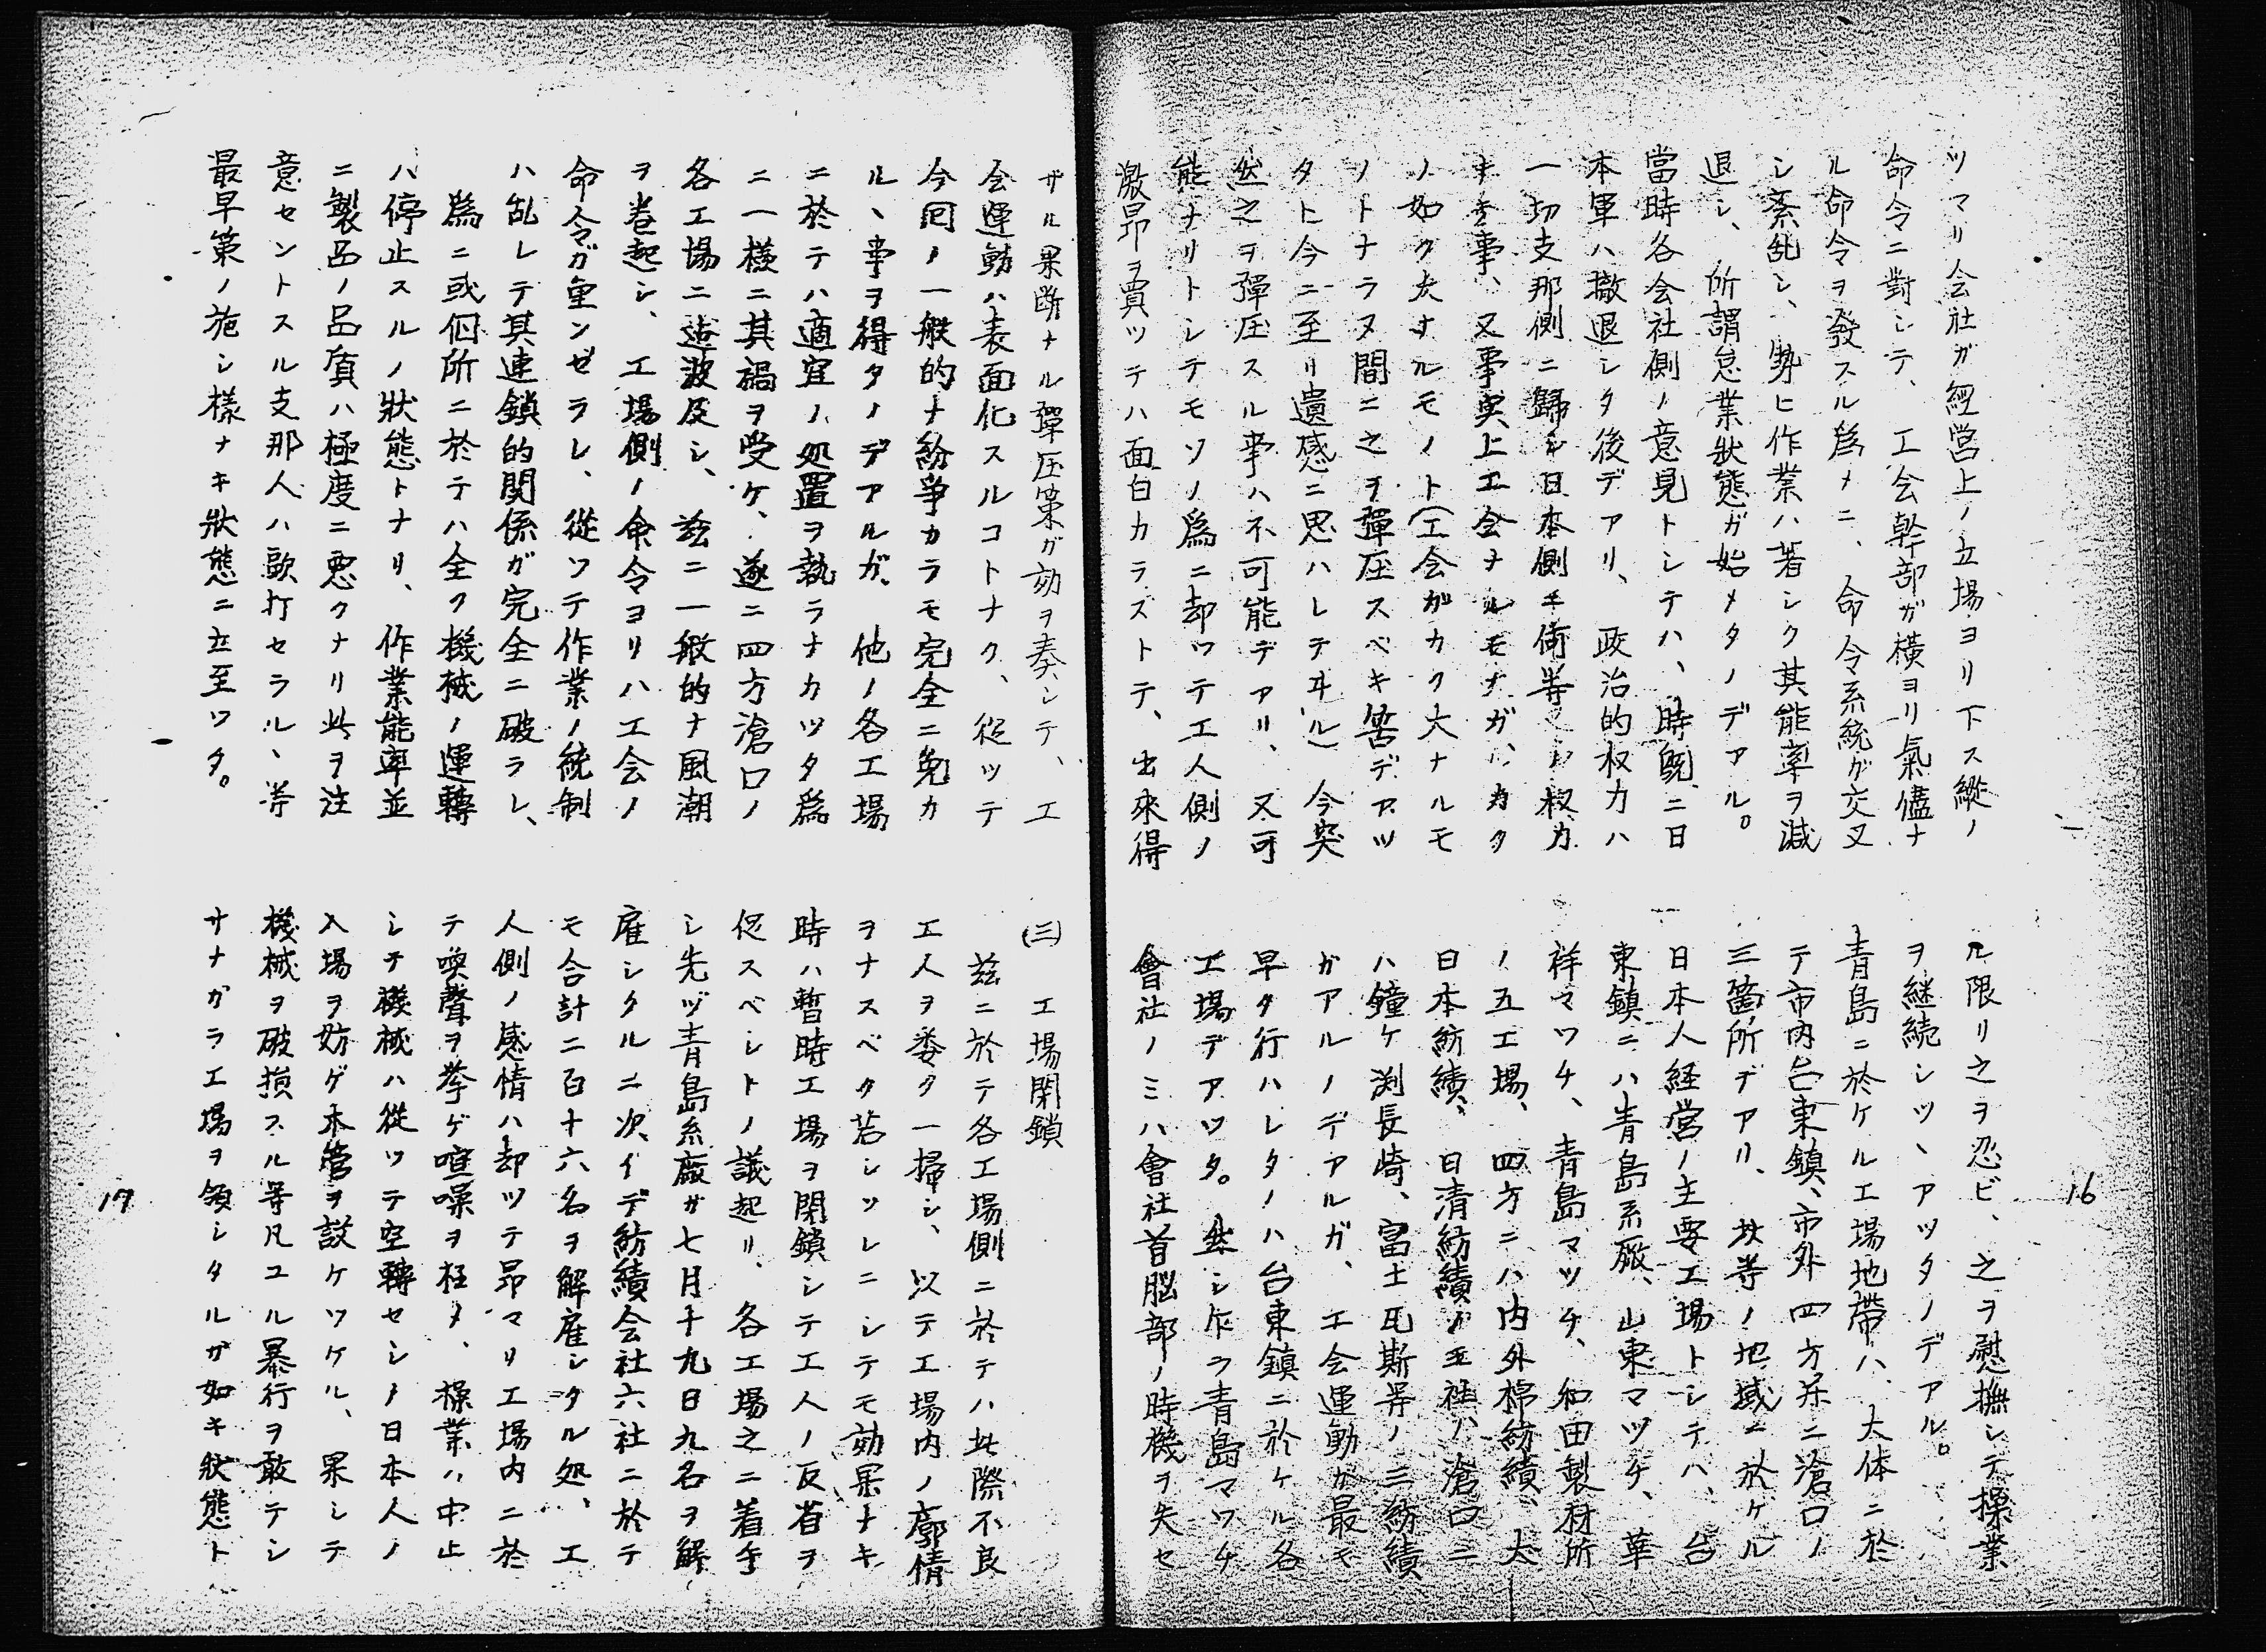 ツマリ会社ガ経営上ノ立場ヨリ下ス縦ノ
命令ニ對シテ、工会幹部ガ横ヨリ氣儘ナ
ル命令ヲ發スル爲メニ、命令系統ガ交叉
シ紊乱シ、勢ヒ作業ハ著シク其能率ヲ減
退シ、所謂怠業狀態ガ始メタノデアル。
當時各会社側ノ意見トシテハ、時既ニ日
本軍ハ撤退シタ後デアリ、政治的权力ハ
一切支那側ニ歸シ日本側ニ何等ノ权力
ナキ事、又事実上工会ナルモノガ、カク
ノ如ク大ナルモノト(工会ガカク大ナルモ
ノトナラヌ間ニ之ヲ彈圧スベキ筈デアツ
タト今ニ至リ遺感ニ思ハレテヰル)今突
然之ヲ彈圧スル事ハ不可能デアリ、又可
能ナリトシテモソノ爲ニ却ツテ工人側ノ
激昻ヲ買ツテハ面白カラストテ、出來得
ル限リ之ヲ忍ビ、之ヲ慰撫シテ操業
ヲ継続シツヽアツタノデアル。
青島ニ於ケル工場地帶ハ、大体ニ於
テ市内台東鎮、市外四方並ニ滄口ノ
三箇所デアリ、此等ノ地域ニ於ケル
日本人経営ノ主要工場トシテハ、台
東鎮ニハ青島糸廠、山東マツチ、華
祥マツチ、青島マツチ、和田製材所
ノ五工場、四方ニハ内外棉紡績、大
日本紡績、日清紡績ノ三社ハ、滄口ニ
ハ鐘ケ渕長崎、富士瓦斯等ノ三紡績
ガアルノデアルガ、工会運動ガ最モ
早ク行ハレタノハ台東鎮ニ於ケル各
工場デアツタ。然シ乍ラ青島マツチ
會社ノミハ會社首脳部ノ時機ヲ失セ
16
ザル果断ナル彈圧策ガ効ヲ奏シテ、工
会運動ハ表面化スルコトナク、從ツテ
今回ノ一般的ナ紛爭カラモ完全ニ免カ
ルヽ事ヲ得タノデアルガ、他ノ各工場
ニ於テハ適宜ノ処置ヲ執ラナカツタ爲
ニ一樣ニ其禍ヲ受ケ、遂ニ四方滄口ノ
各工場ニ迄波及シ、茲ニ一般的ナ風潮
ヲ巻起シ、工場側ノ命令ヨリハ工会ノ
命令ガ重ンゼラレ、從ツテ作業ノ統制
ハ乱レテ其連鎖的関係ガ完全ニ破ラレ、
爲ニ或個所ニ於テハ全ク機械ノ運轉
ハ停止スルノ狀態トナリ、作業能率並
ニ製品ノ品質ハ極度ニ悪クナリ此ヲ注
意セントスル支那人ハ歐打セラルヽ等
最早策ノ施シ樣ナキ狀態ニ立至ツタ。
(三) 工場閉鎖
茲ニ於テ各工場側ニ於テハ此際不良
工人ヲ悉ク一掃シ、以テ工場内ノ廓情
ヲナスベク若シソレニシテモ効果ナキ
時ハ暫時工場ヲ閉鎖シテ工人ノ反省ヲ
促スベシトノ議起リ、各工場之ニ着手
シ先ヅ青島糸廠ガ七月十九日九名ヲ解
雇シタルニ次イデ紡績会社六社ニ於テ
モ合計二百十六名ヲ解雇シタル処、工
人側ノ感情ハ却ツテ昻マリ工場内ニ於
テ喚聲ヲ挙ゲ喧噪ヲ枉メ、操業ハ中止
シテ機械ハ從ツテ空轉セシメ日本人ノ
入場ヲ妨ゲ木管ヲ投ケツケル、果シテ
機械ヲ破損スル等凡ユル暴行ヲ敢テシ
サナガラ工場ヲ領シタルガ如キ狀態ト
17